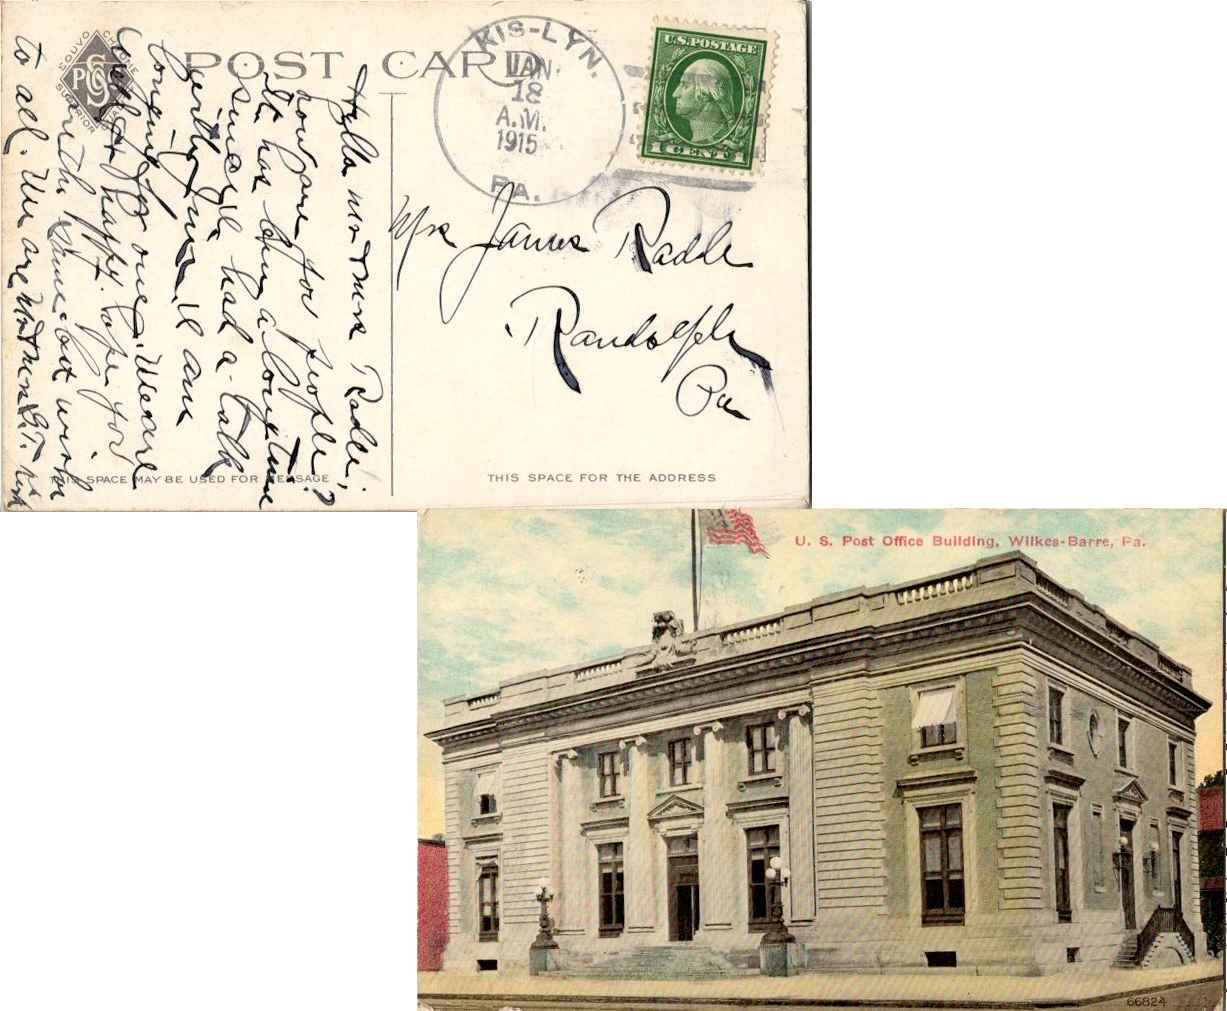 POST CARD
KIS-LYN.
JAN
18
A.M.
1915
PA.
U.S. POSTAGE
1 CENT 1
SOUVO CHROME
PCS
SUPERIOR
Hello Mr & Mrs Radle,
how are you people?
It has been a long time
since we had a talk
with you. We are
longing for one. We are
well & happy. Hope you
are the same. Best wishes
to all. We are Mr & Mrs
Mrs James Radle
Randolph
Pa
THIS SPACE MAY BE USED FOR MESSAGE
THIS SPACE FOR THE ADDRESS
U. S. Post Office Building, Wilkes-Barre, Pa.
66824